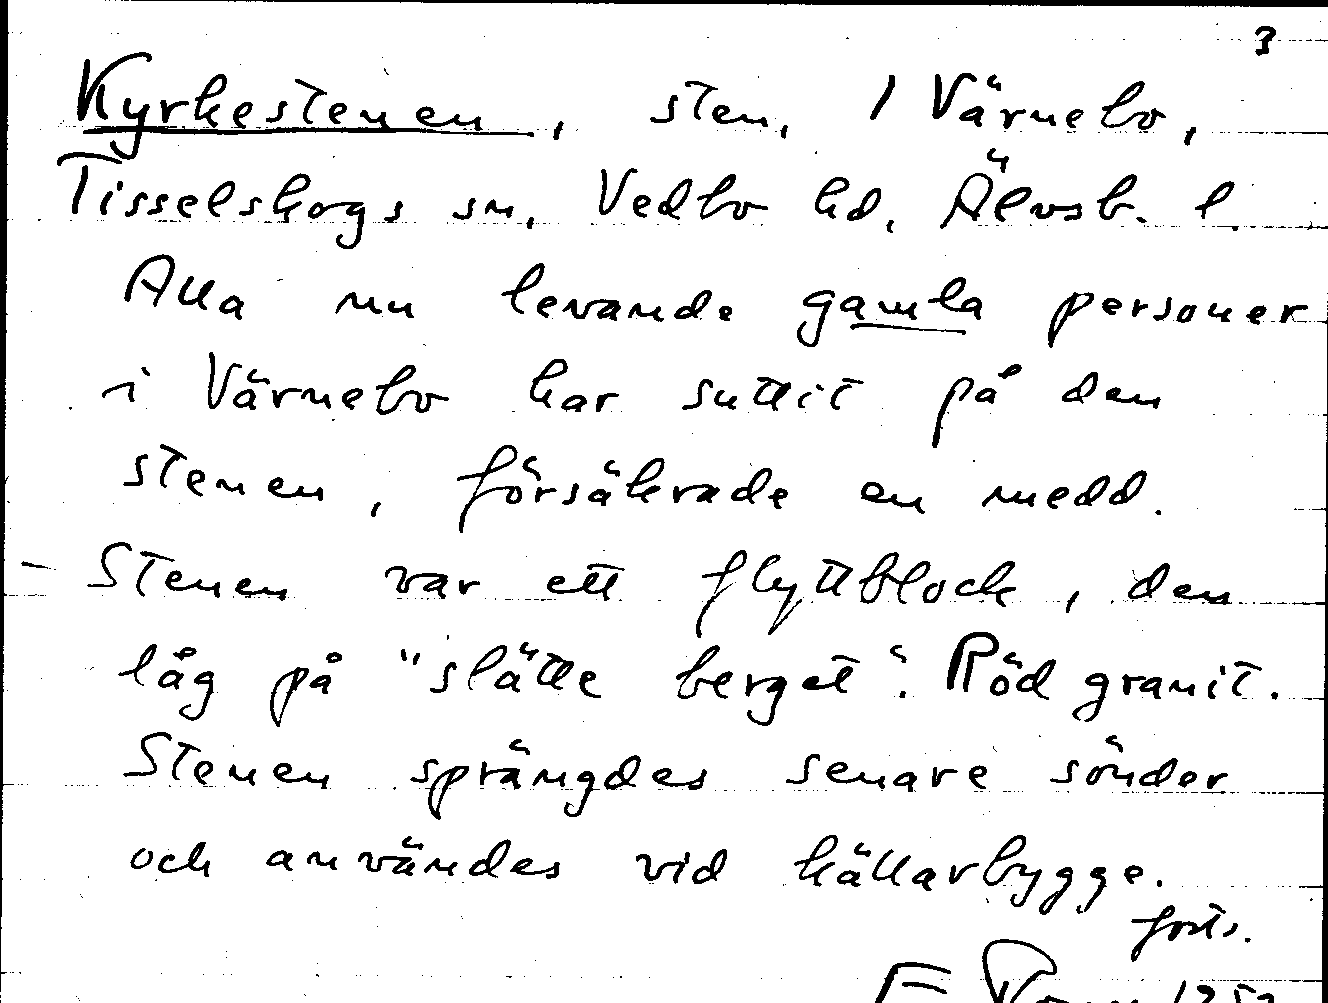 3
Kyrkestenen, sten, 1 Värnebo,
Tisselskogs sn, Vedbo hd, Älvsb. l.
Alla nu levande gamla personer
i Värnebo har suttit på den
stenen, försäkrade en medd.
- Stenen var ett flyttblock, den
låg på "slätte berget". Röd granit.
Stenen sprängdes senare sönder
och användes vid källarbygge.
forts.